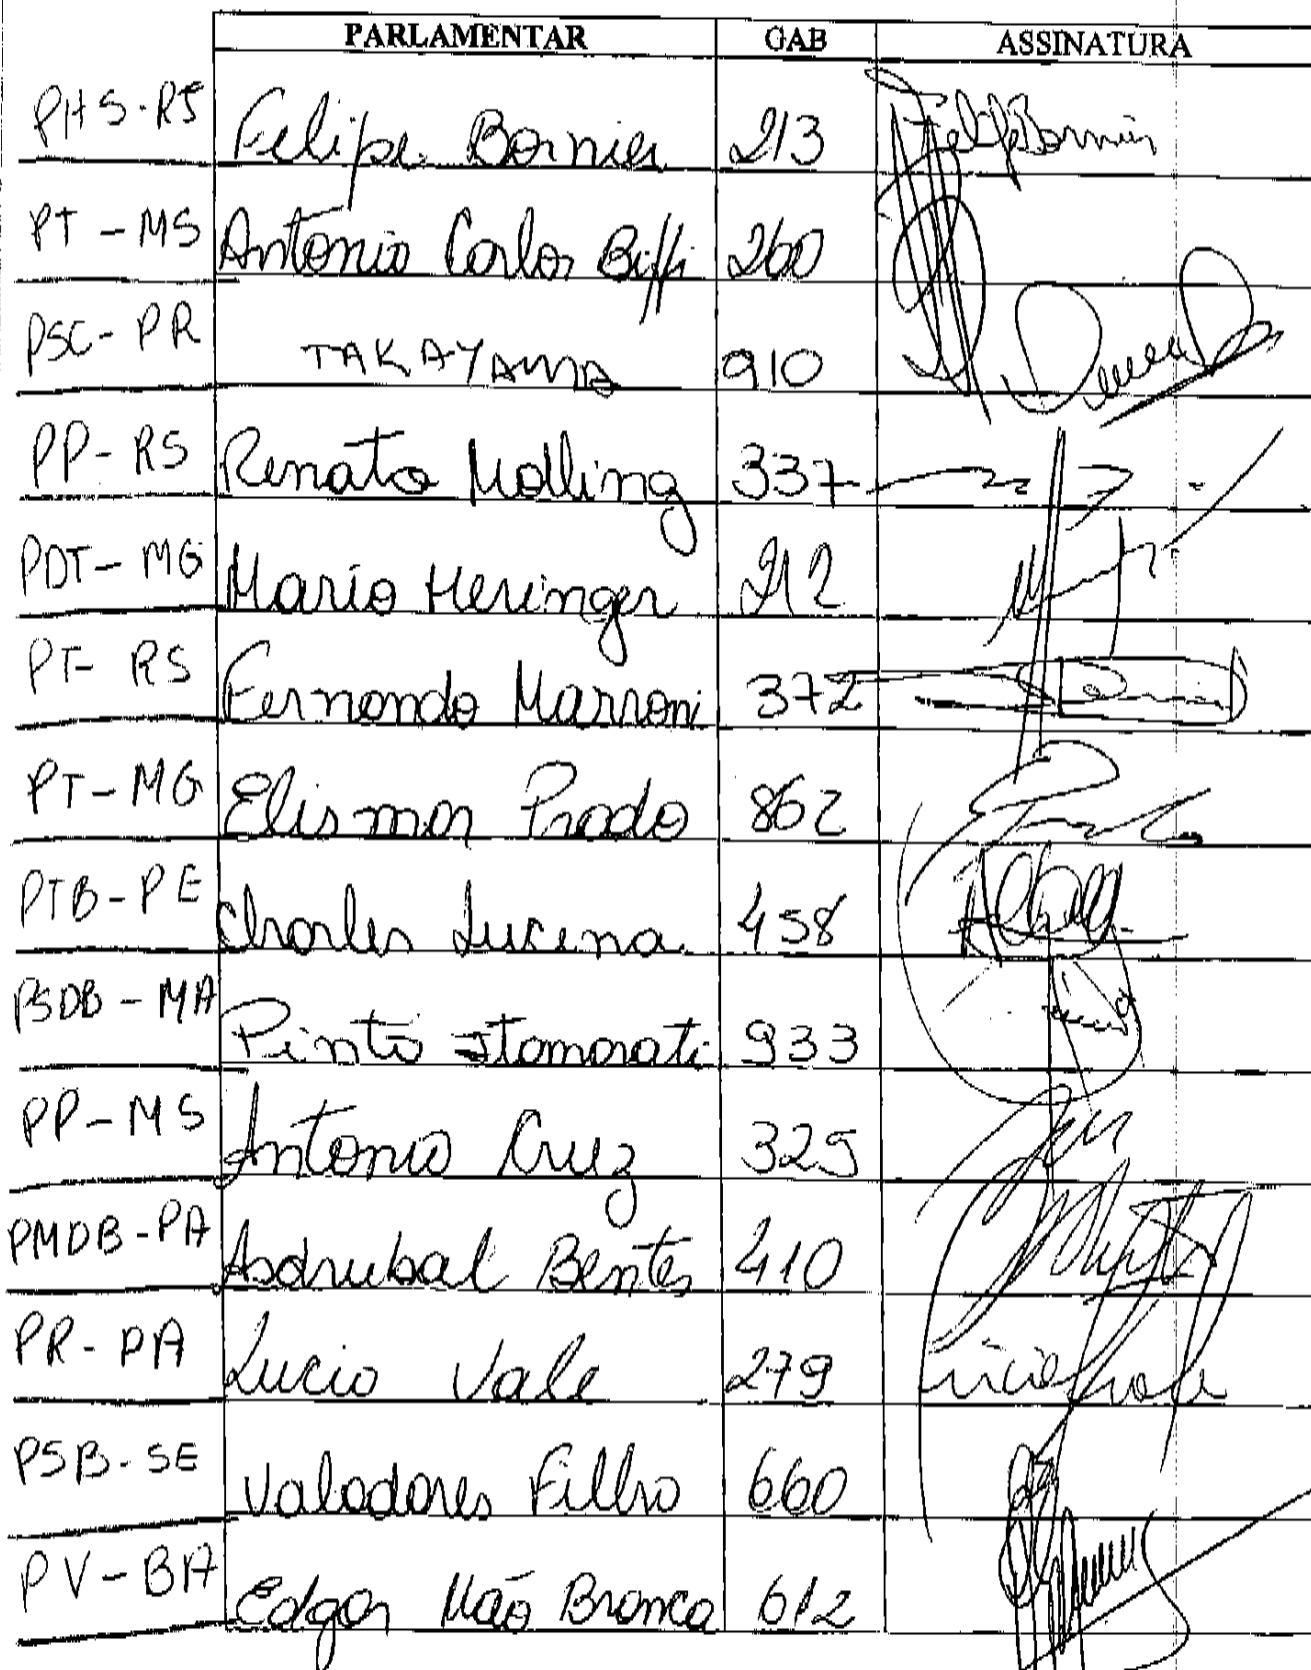 PARLAMENTAR GAB ASSINATURA
PHS-RJ Felipe Bornier 213 Felipe Bornier
PT-MS Antonio Carlos Biffi 260
PSC-PR TAKAYAMA 910
PP-RS Renato Molling 337
PDT-MG Mario Heringer 212
PT-RS Fernando Marroni 372
PT-MG Elismar Prado 862
PTB-PE Charles Lucena 458
PSDB-MA Pinto Itamarati 933
PP-MS Antonio Cruz 325
PMDB-PA Asdrubal Bentes 410
PR-PA Lucio Vale 279 Lúcio Vale
PSB-SE Valadares Filho 660
PV-BA Edgar Mão Branca 612